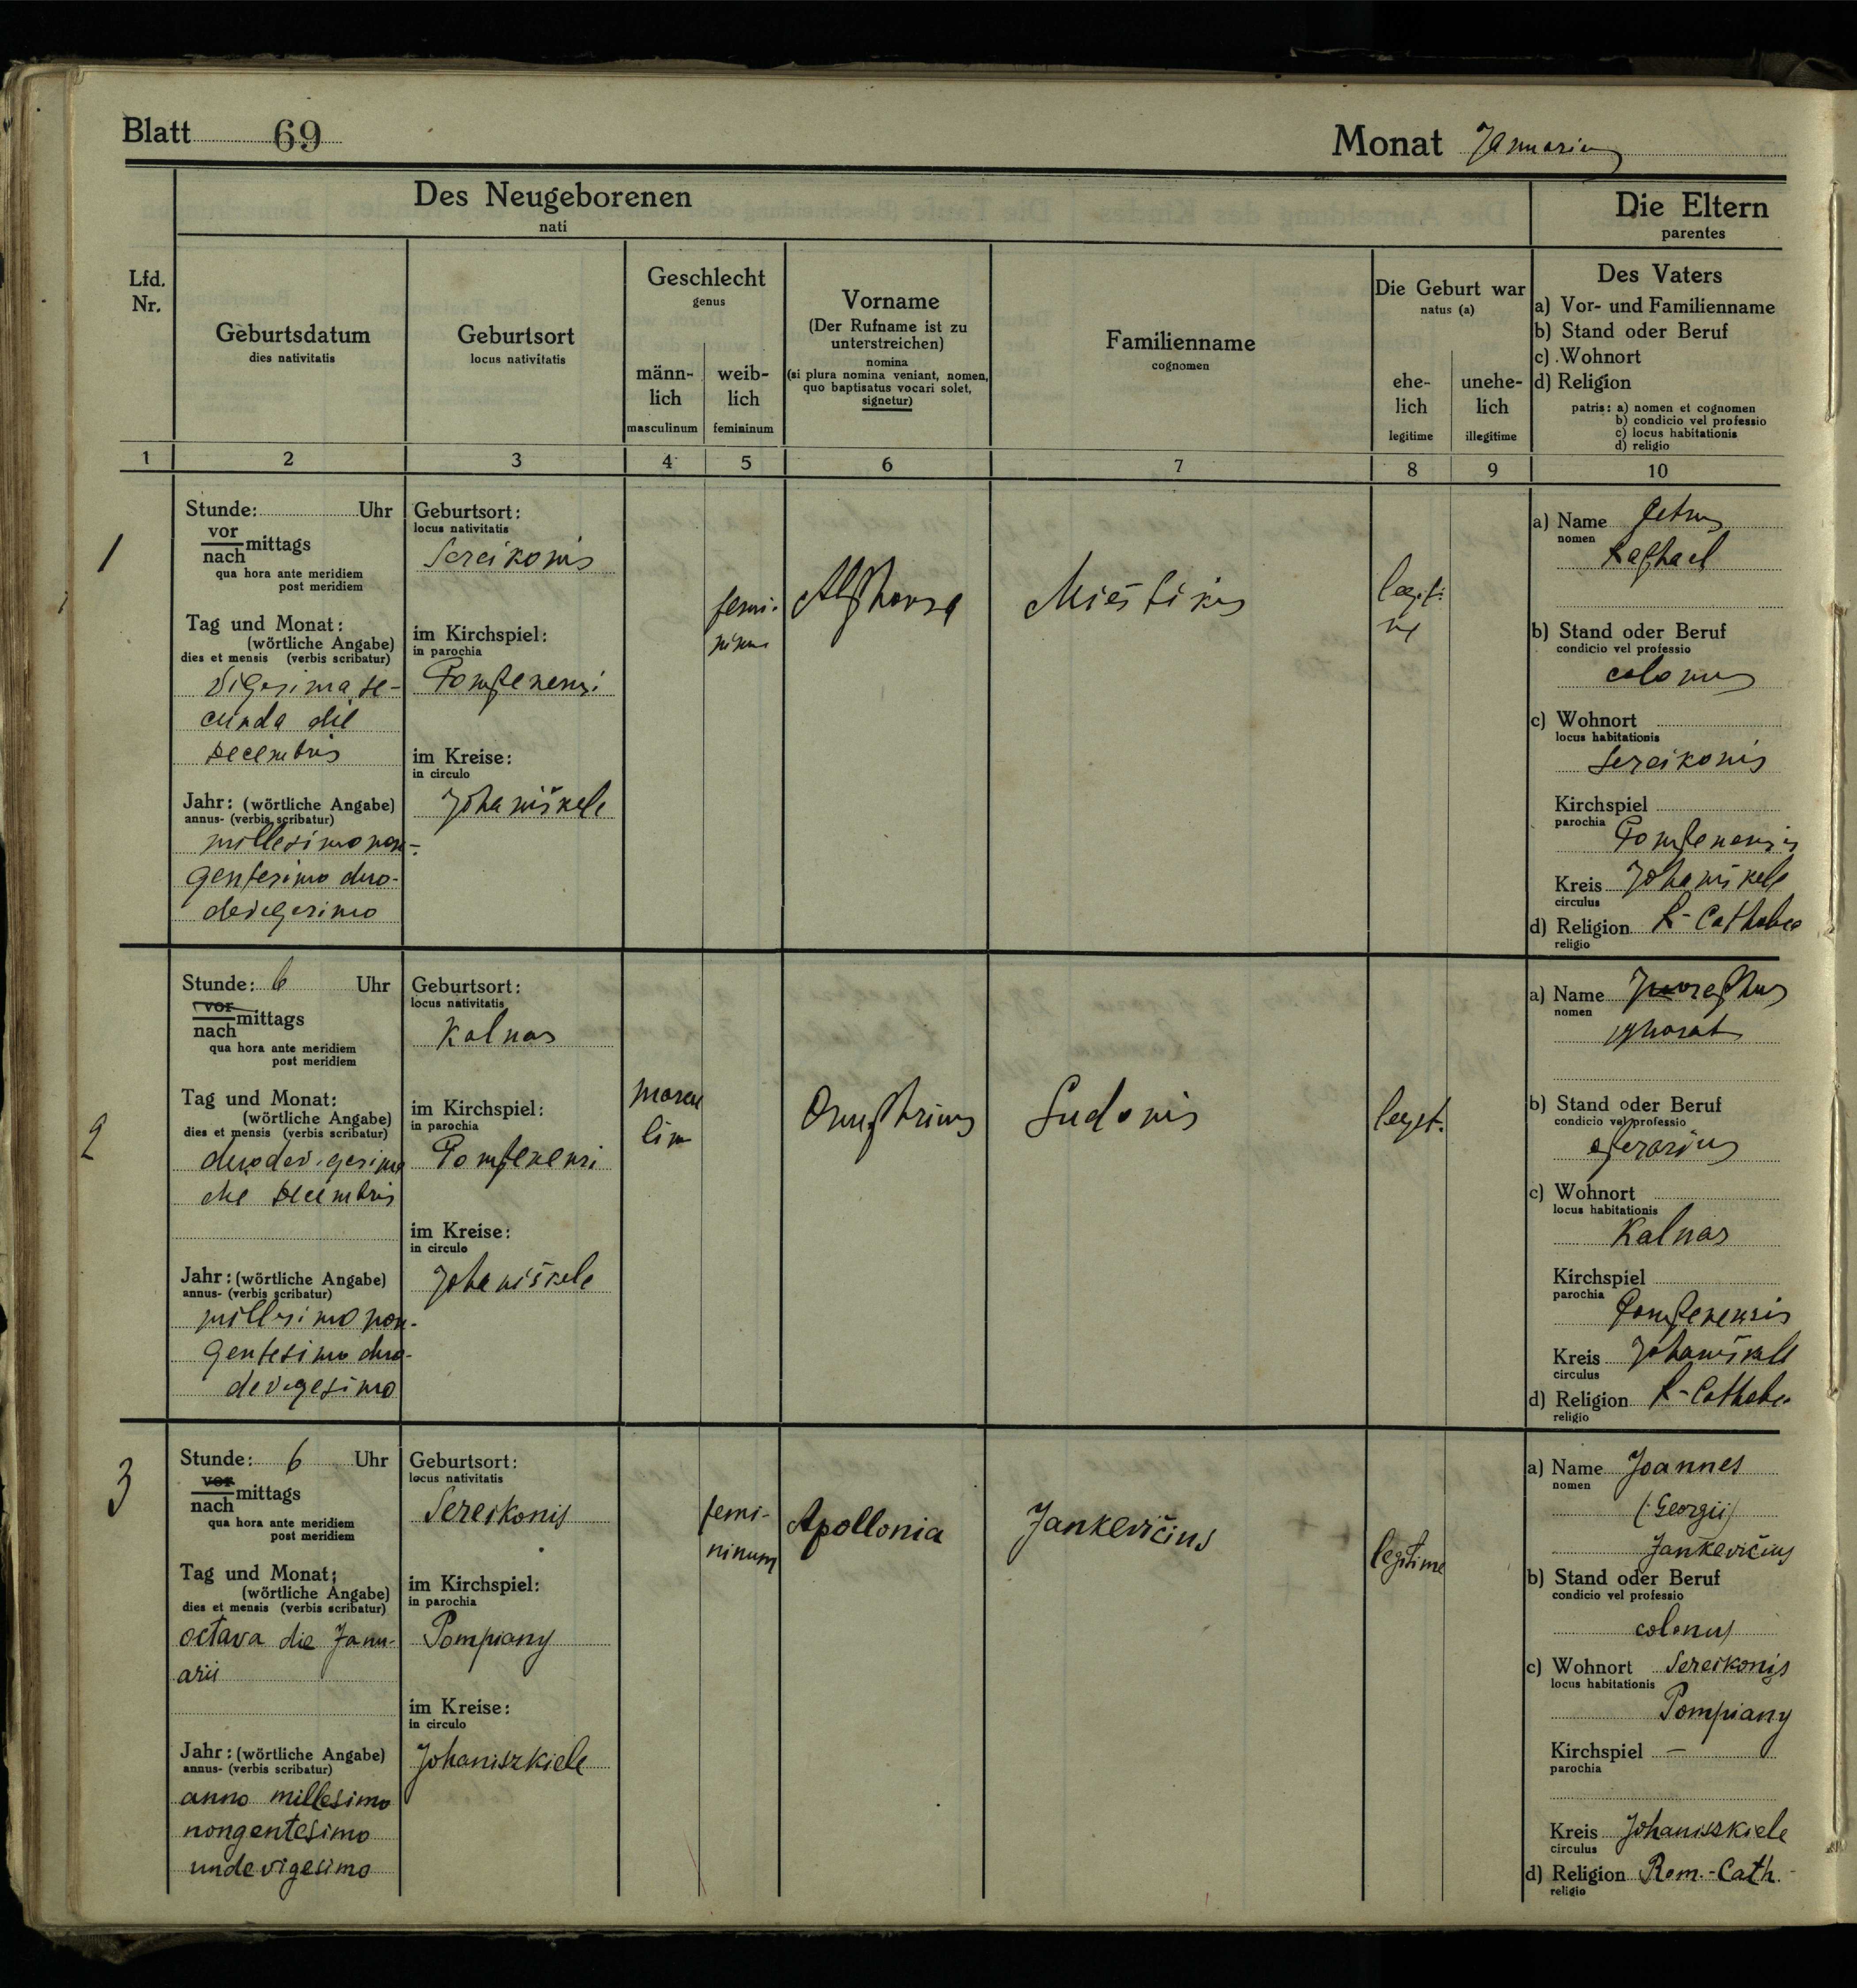 Blatt 69
Monat Januarius
Des Neugeborenen
nati
Die Eltern
parentes
Lfd.
Nr.
Geburtsdatum
dies nativitatis
Geburtsort
locus nativitatis
Geschlecht
genus
männ-
lich
masculinum
weib-
lich
femininum
Vorname
(Der Rufname ist zu
unterstreichen)
nomina
(si plura nomina veniant, nomen,
quo baptisatus vocari solet,
signetur)
Familienname
cognomen
Die Geburt war
natus (a)
ehe-
lich
legitime
unehe-
lich
illegitime
Des Vaters
a) Vor- und Familienname
b) Stand oder Beruf
c) Wohnort
d) Religion
patris: a) nomen et cognomen
b) condicio vel professio
c) locus habitationis
d) religio
1 2 3 4 5 6 7 8 9 10
1
Stunde: Uhr
vor
nach mittags
qua hora ante meridiem
post meridiem
Tag und Monat:
(wörtliche Angabe)
dies et mensis (verbis scribatur)
vigesima se-
cunda die
Decembris
Jahr: (wörtliche Angabe)
annus- (verbis scribatur)
millesimo non-
gentesimo duo-
devigesimo
Geburtsort:
locus nativitatis
Sereikonis
im Kirchspiel:
in parochia
Pompenensi
im Kreise:
in circulo
Johaniškele
femi-
ninum
Alphonsa
Miestikis
legiti
me
a) Name Petrus
nomen
Raphael
b) Stand oder Beruf
condicio vel professio
colonus
c) Wohnort
locus habitationis
Sereikonis
Kirchspiel
parochia
Pompenensis
Kreis Johaniškele
circulus
d) Religion R-Catholica
religio
2
Stunde: 6 Uhr
vor
nach mittags
qua hora ante meridiem
post meridiem
Tag und Monat:
(wörtliche Angabe)
dies et mensis (verbis scribatur)
duodevigesima
die Decembris
Jahr: (wörtliche Angabe)
annus- (verbis scribatur)
millesimo non-
gentesimo duo-
devigesimo
Geburtsort:
locus nativitatis
Kalnas
im Kirchspiel:
in parochia
Pompenensi
im Kreise:
in circulo
Johaniškele
mascu
lin
Onuphrius
Ludonis
legit.
a) Name
nomen
b) Stand oder Beruf
condicio vel professio
operarius
c) Wohnort
locus habitationis
Kalnas
Kirchspiel
parochia
Pompenensis
Kreis Johaniškele
circulus
d) Religion R-Catholica
religio
3
Stunde: 6 Uhr
vor
nach mittags
qua hora ante meridiem
post meridiem
Tag und Monat:
(wörtliche Angabe)
dies et mensis (verbis scribatur)
octava die Janu-
arii
Jahr: (wörtliche Angabe)
annus- (verbis scribatur)
anno millesimo
nongentesimo
undevigesimo
Geburtsort:
locus nativitatis
Sereikonis
im Kirchspiel:
in parochia
Pompiany
im Kreise:
in circulo
Johaniszkiele
femi-
ninum
Apollonia
Jankevičius
legitime
a) Name Joannes
nomen
(Georgii)
Jankevičius
b) Stand oder Beruf
condicio vel professio
colonus
c) Wohnort Sereikonis
locus habitationis
Pompiany
Kirchspiel –
parochia
Kreis Johaniszkiele
circulus
d) Religion Rom.-Cath.
religio